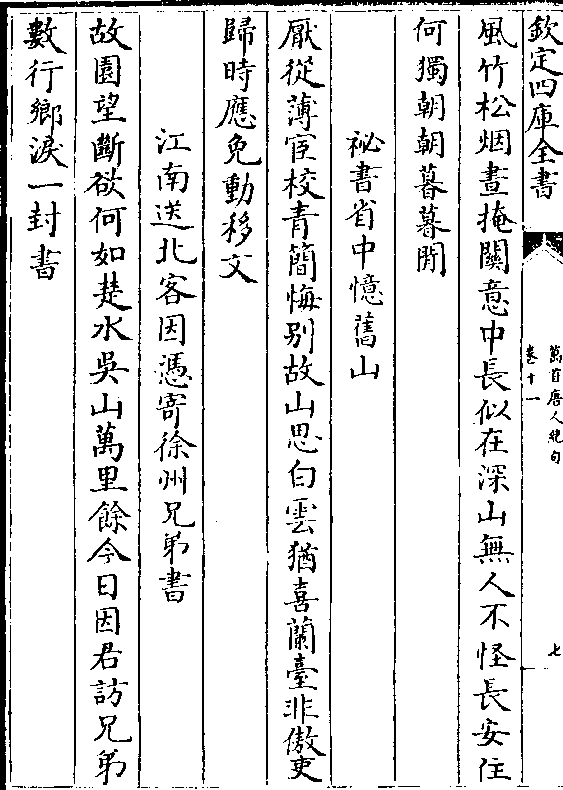 欽定四庫全書
萬首唐人絶句
卷十一
七
風竹松烟晝掩關意中長似在深山無人不怪長安住
何獨朝朝暮暮閒
秘書省中憶舊山
厭從薄宦校青簡悔别故山思白雲猶喜蘭臺非傲吏
歸時應免動移文
江南送北客因憑寄徐州兄弟書
故園望斷欲何如楚水吳山萬里餘今日因君訪兄弟
數行鄉淚一封書